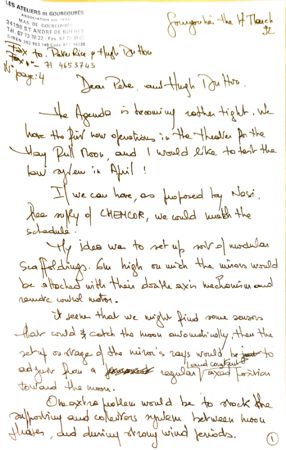 LES ATELIERS DE GOURGOUBÈS
ASSOCIATION LOI 1901
MAS DE GOURGOUBÈS
34190 ST ANDRÉ DE BUÈGES
Gourgoubès the 4 March
92
Fax to: Peter Rice & Hugh Dutton
Fax n° 71 465 3743
N° page: 4
Dear Peter, and Hugh Dutton.
The Agenda is becoming rather tight. We
have the first new operations in the Theatre for the
May Full Moon, and I would like to test the
low system in April!
If we can have, as proposed by Nosi.
free supply of CHEMCOR, we could match the
schedule.
My idea was to set up sort of modular
scaffoldings. 6m high on which the mirrors would
be attached with their double axis mechanism and
remote control motor.
It seems that we might find some sensors
that could catch the moon automatically, then the
set up orientage of the mirror's rays would be just to
adjust from a regular and constant fixed position
toward the moon.
One extra problem would be to stock the
supporting and collectors system between moon
phases, and during strong wind periods.
1